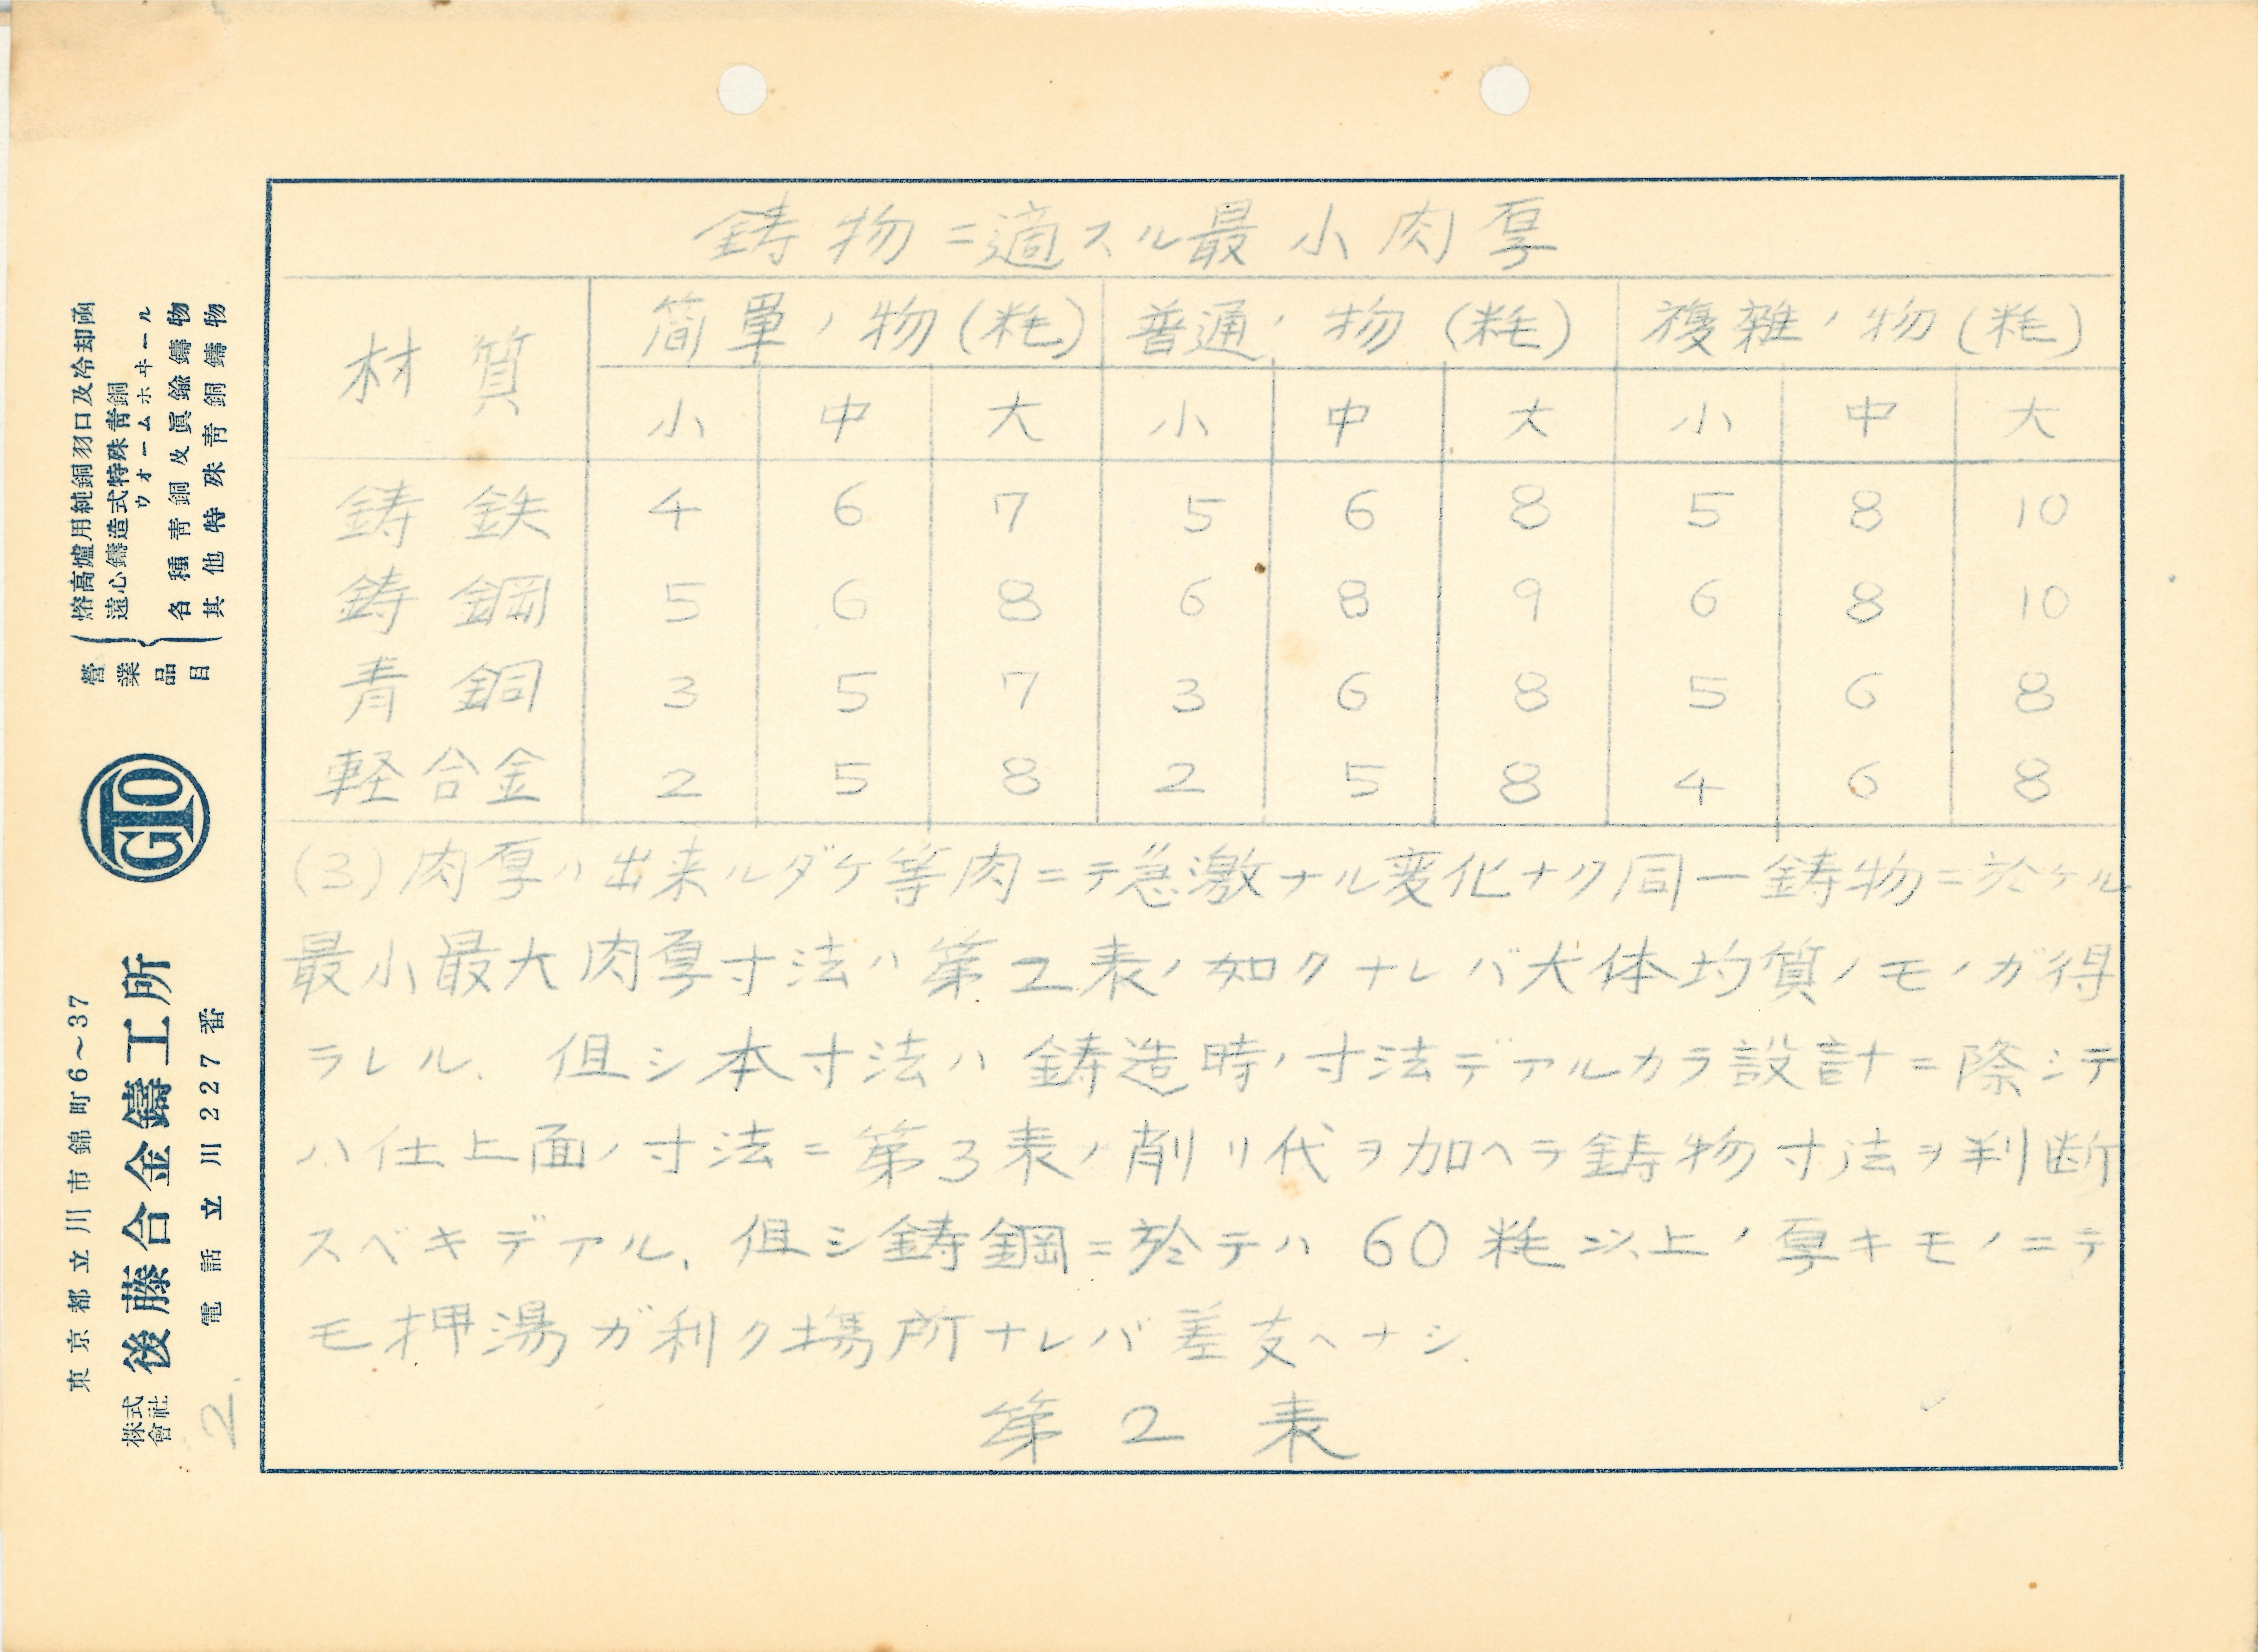 鋳物ニ適スル最小肉厚
材質 簡單ノ物(粍) 普通ノ物(粍) 複雑ノ物(粍)
小 中 大 小 中 大 小 中 大
鋳鉄 4 6 7 5 6 8 5 8 10
鋳鋼 5 6 8 6 8 9 6 8 10
青銅 3 5 7 3 6 8 5 6 8
軽合金 2 5 8 2 5 8 4 6 8
(3)肉厚ハ出来ルダケ等肉ニテ急激ナル変化ナク同一鋳物ニ於ケル
最小最大肉厚寸法ハ第2表ノ如クナレバ大体均質ノモノガ得
ラレル、但シ本寸法ハ鋳造時ノ寸法デアルカラ設計ニ際シテ
ハ仕上面ノ寸法ニ第3表ノ削リ代ヲ加ヘテ鋳物寸法ヲ判断
スベキデアル、但シ鋳鋼ニ於テハ60粍以上ノ厚キモノニテ
モ押湯ガ利ク場所ナレバ差支ヘナシ.
第2表
營業品目
熔高爐用純銅羽口及冷却凾
遠心鑄造式特殊靑銅
ウォームホヰール
各種靑銅及眞鍮鑄物
其他特殊靑銅鑄物
GTO
東京都立川市錦町6〜37
株式會社 後藤合金鑄工所
電話立川227番
2.